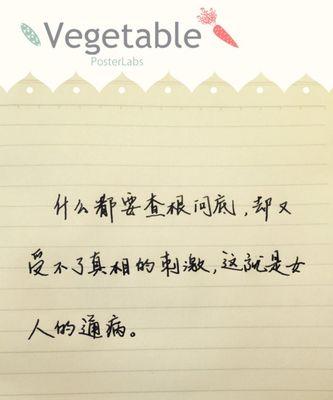 Vegetable
PosterLabs
什么都要查根问底，却又
受不了真相的刺激，这就是女
人的通病。